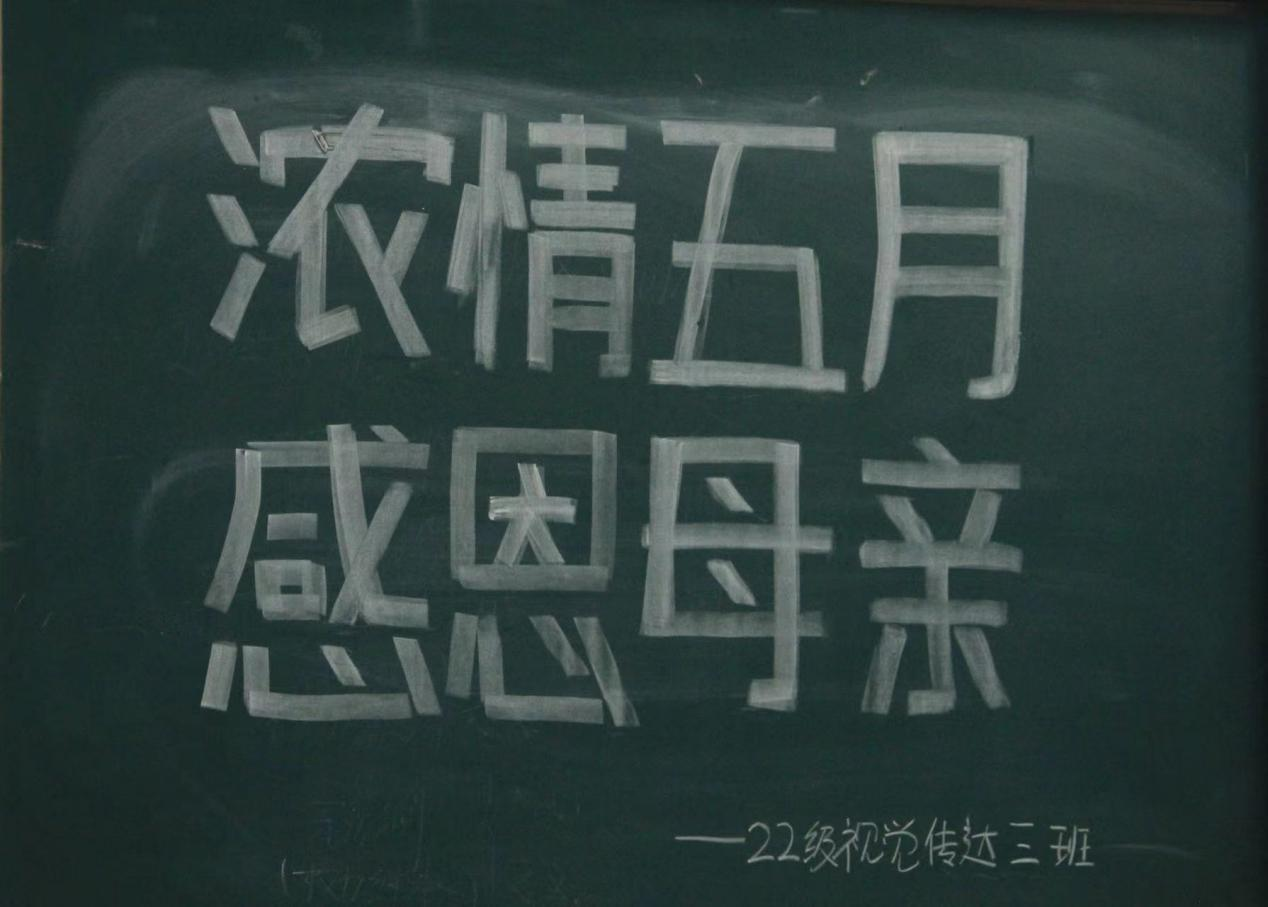 浓情五月
感恩母亲
——22级视觉传达三班